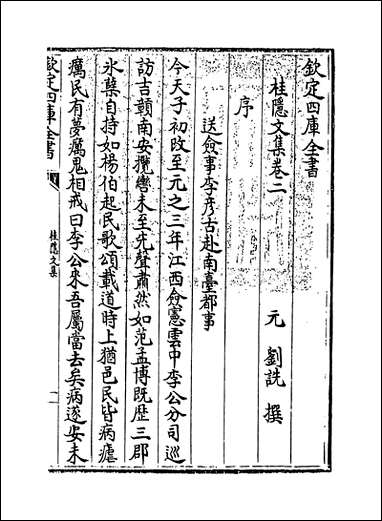 欽定四庫全書
桂隱文集卷二
元 劉詵 撰
序
送僉事李彦古赴南臺都事
今天子初改至元之三年江西僉憲雲中李公分司巡
訪吉贛南安攬轡未至先聲肅然如范孟博既歷三郡
氷蘗自持如楊伯起民歌頌載道時上猶邑民皆病瘧
癘民有夢癘鬼相戒曰李公來吾屬當去矣病遂安未
欽定四庫全書
桂隱文集
一